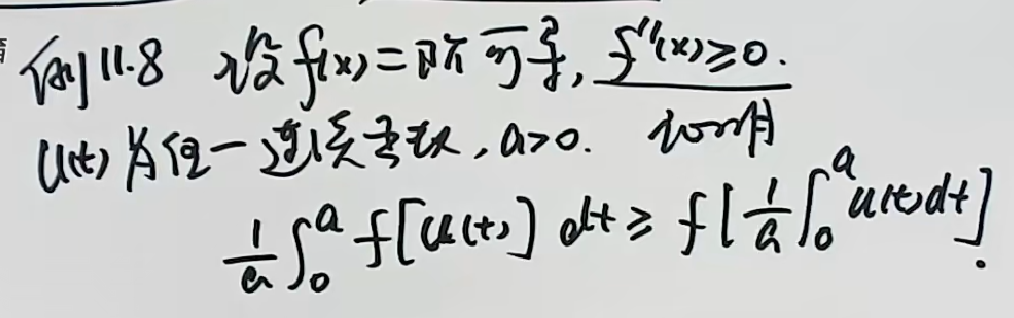 例11.8 设f(x)二阶可导, f''(x)≥0.
u(t)为任一连续函数, a>0. 证明
1/a ∫₀ᵃ f[u(t)] dt ≥ f[1/a ∫₀ᵃ u(t)dt].